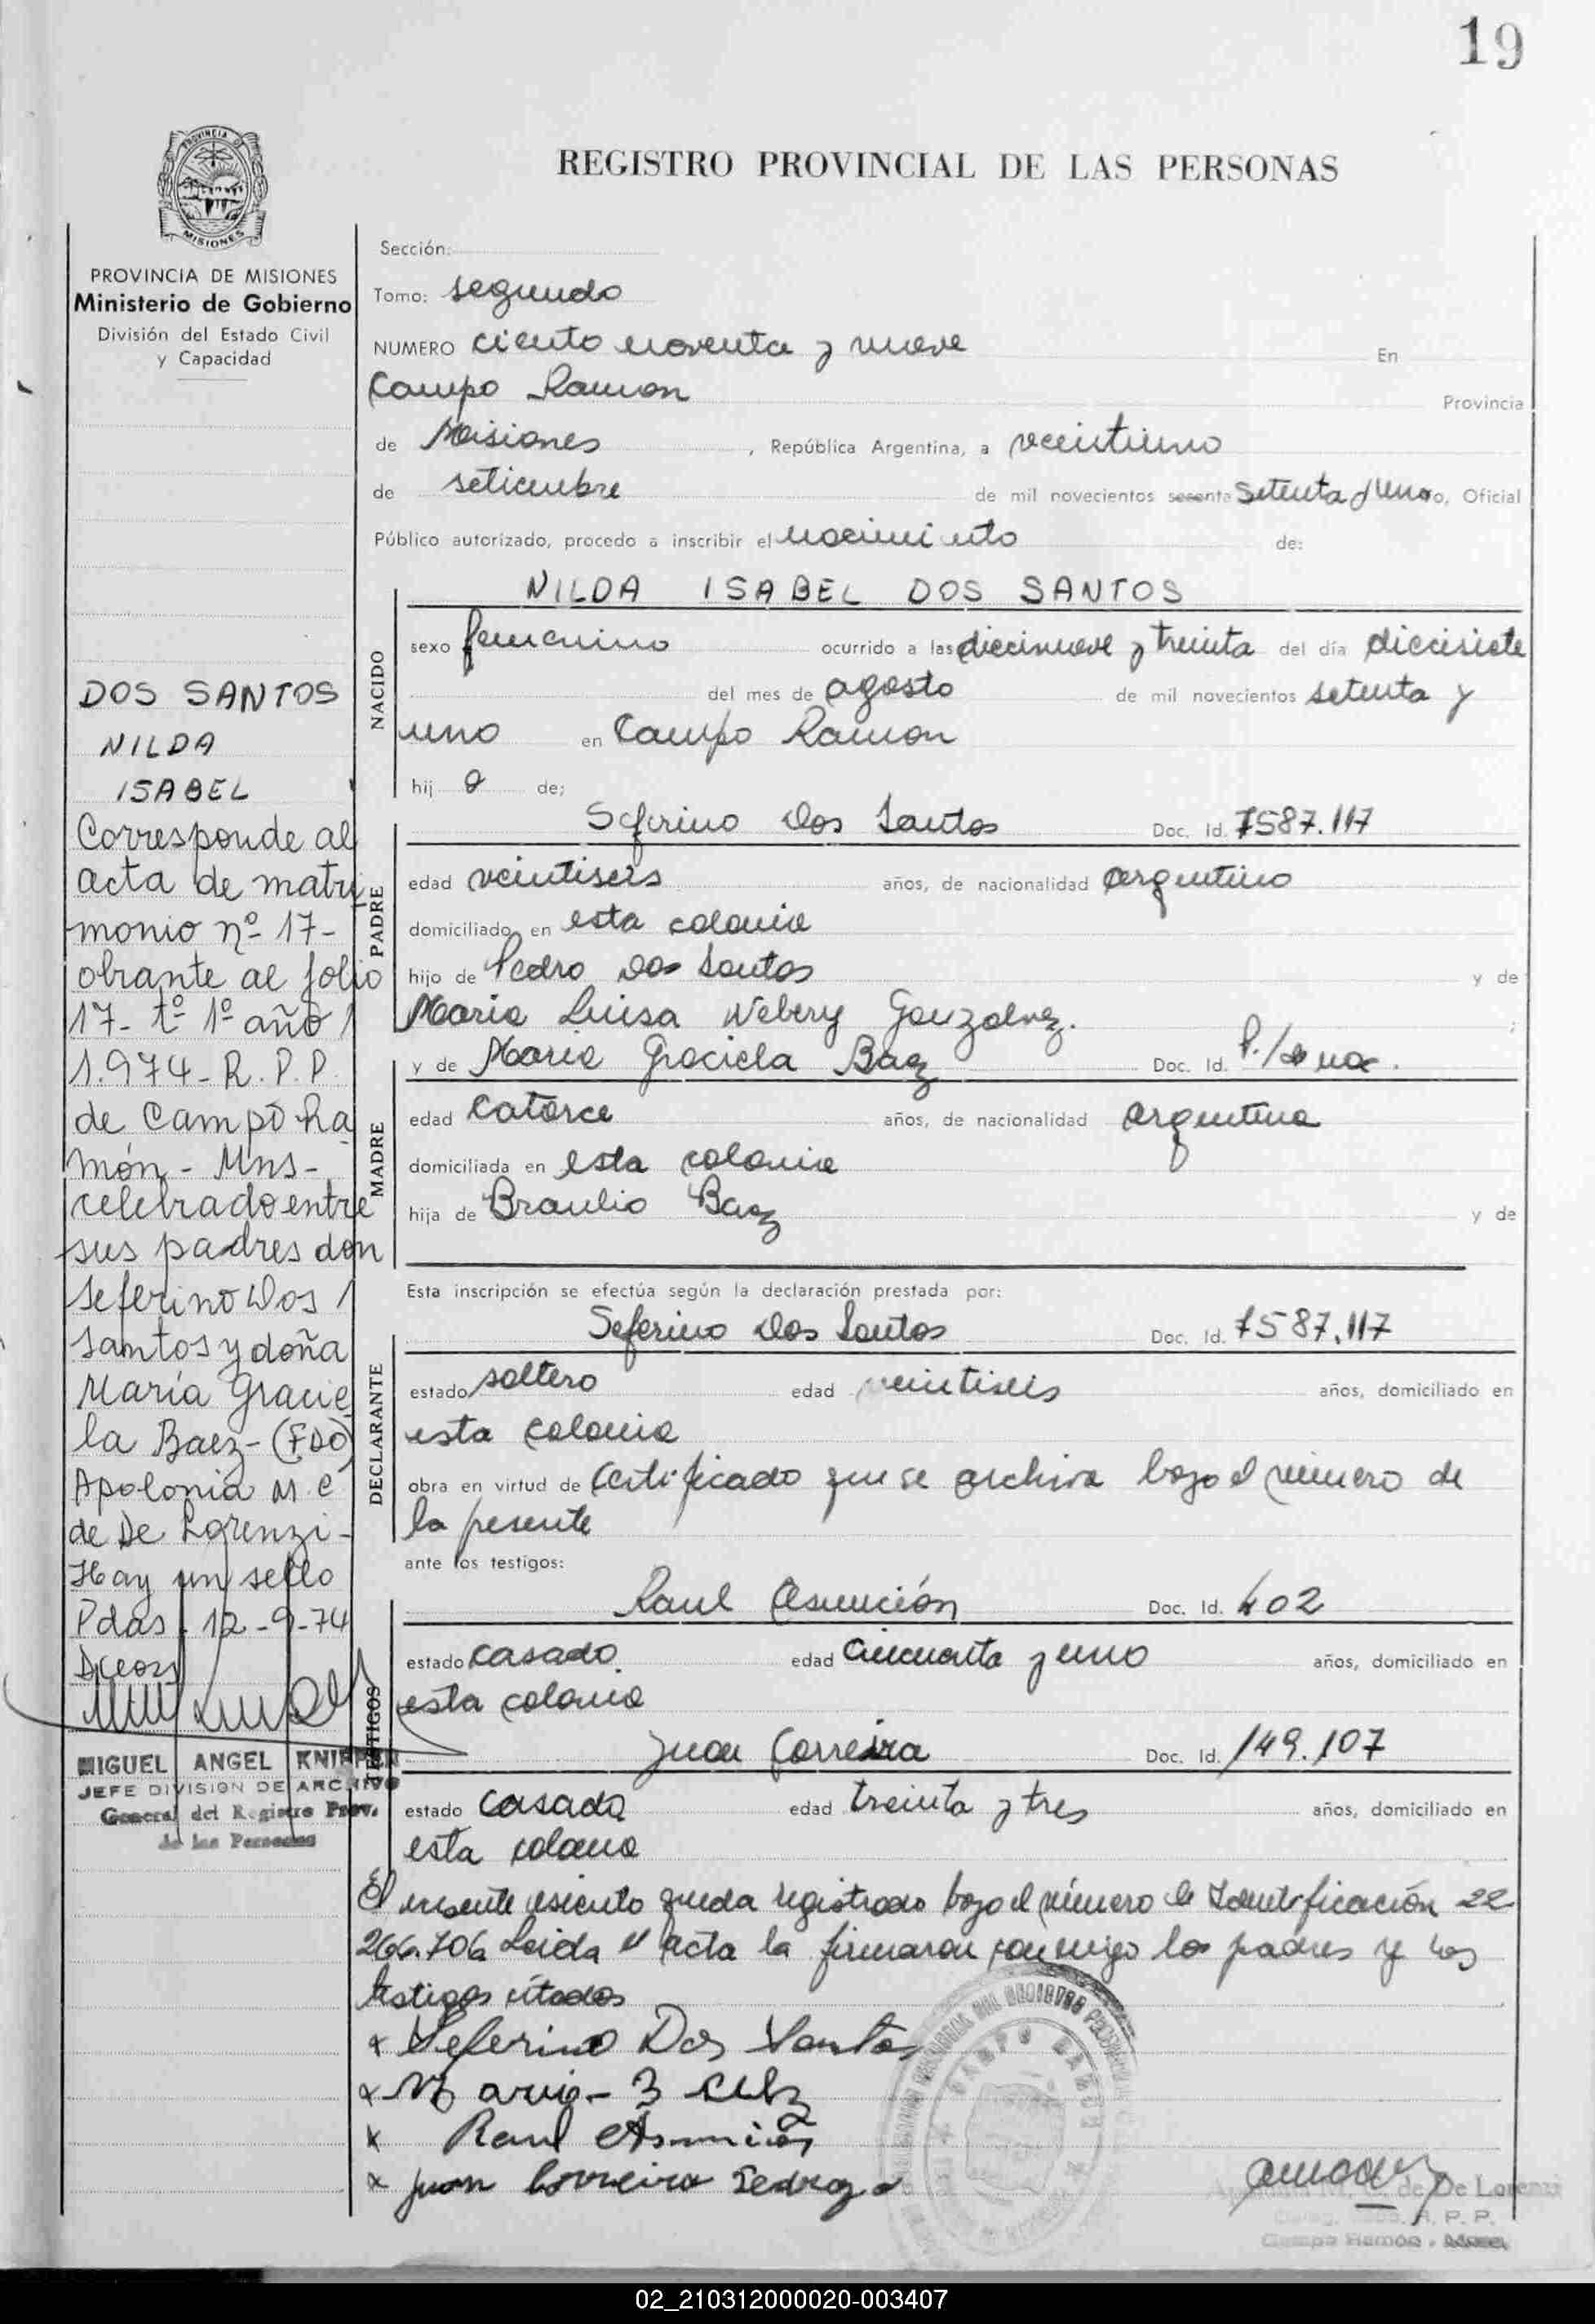 19
REGISTRO PROVINCIAL DE LAS PERSONAS
PROVINCIA DE MISIONES
Ministerio de Gobierno
División del Estado Civil
y Capacidad
DOS SANTOS
NILDA
ISABEL
Corresponde al
acta de matri
monio nº 17-
obrante al folio
17- tº 1º año
1.974- R. P. P.
de Campo Ra
món - Mns-
celebrado entre
sus padres don
Seferino Dos
Santos y doña
María Gracie
la Baez- (FDO)
Apolonia M. C
de De Lorenzi-
Hay un sello
Pdas - 12-9-74
MIGUEL ANGEL
JEFE DIVISION DE ARCHIVO
General del Registro Prov.
de las Personas
Sección:
Tomo: segundo
NUMERO ciento noventa y nueve En
Campo Ramon Provincia
de Misiones, República Argentina, a veintiuno
de setiembre de mil novecientos sesenta setenta y uno, Oficial
Público autorizado, procedo a inscribir el nacimiento de:
NILDA ISABEL DOS SANTOS
NACIDO
sexo femenino ocurrido a las diecinueve y treinta del día diecisiete
del mes de agosto de mil novecientos setenta y
uno en Campo Ramon
hij a de;
PADRE
Seferino Dos Santos Doc. Id. 7587.117
edad veintiseis años, de nacionalidad argentino
domiciliado en esta colonia
hijo de Pedro Dos Santos y de
Maria Luisa Nebery Gonzalvez. ;
MADRE
y de Maria Graciela Baez Doc. Id.
edad catorce años, de nacionalidad argentina
domiciliada en esta colonia
hija de Braulio Baez y de
Esta inscripción se efectúa según la declaración prestada por:
DECLARANTE
Seferino Dos Santos Doc. Id. 7587.117
estado soltero edad veintiseis años, domiciliado en
esta colonia
obra en virtud de certificado que se archiva bajo el número de
la presente
ante los testigos:
TESTIGOS
Raul Asunción Doc. Id. 402
estado casado. edad cincuenta y uno años, domiciliado en
esta colonia
Juan Correira Doc. Id. 149.107
estado casado edad treinta y tres años, domiciliado en
esta colonia
El presente asiento queda registrado bajo el número de Identificación 22
266.706 Leida el acta la firmaron conmigo los padres y los
testigos citados
x Seferino Dos Santos
x Maria
x Raul Asunción
x Juan Correira Pedrozo
CAMPO RAMON
de De Lorenzi
R. P. P.
Campo Ramón - Mnes.
02_210312000020-003407